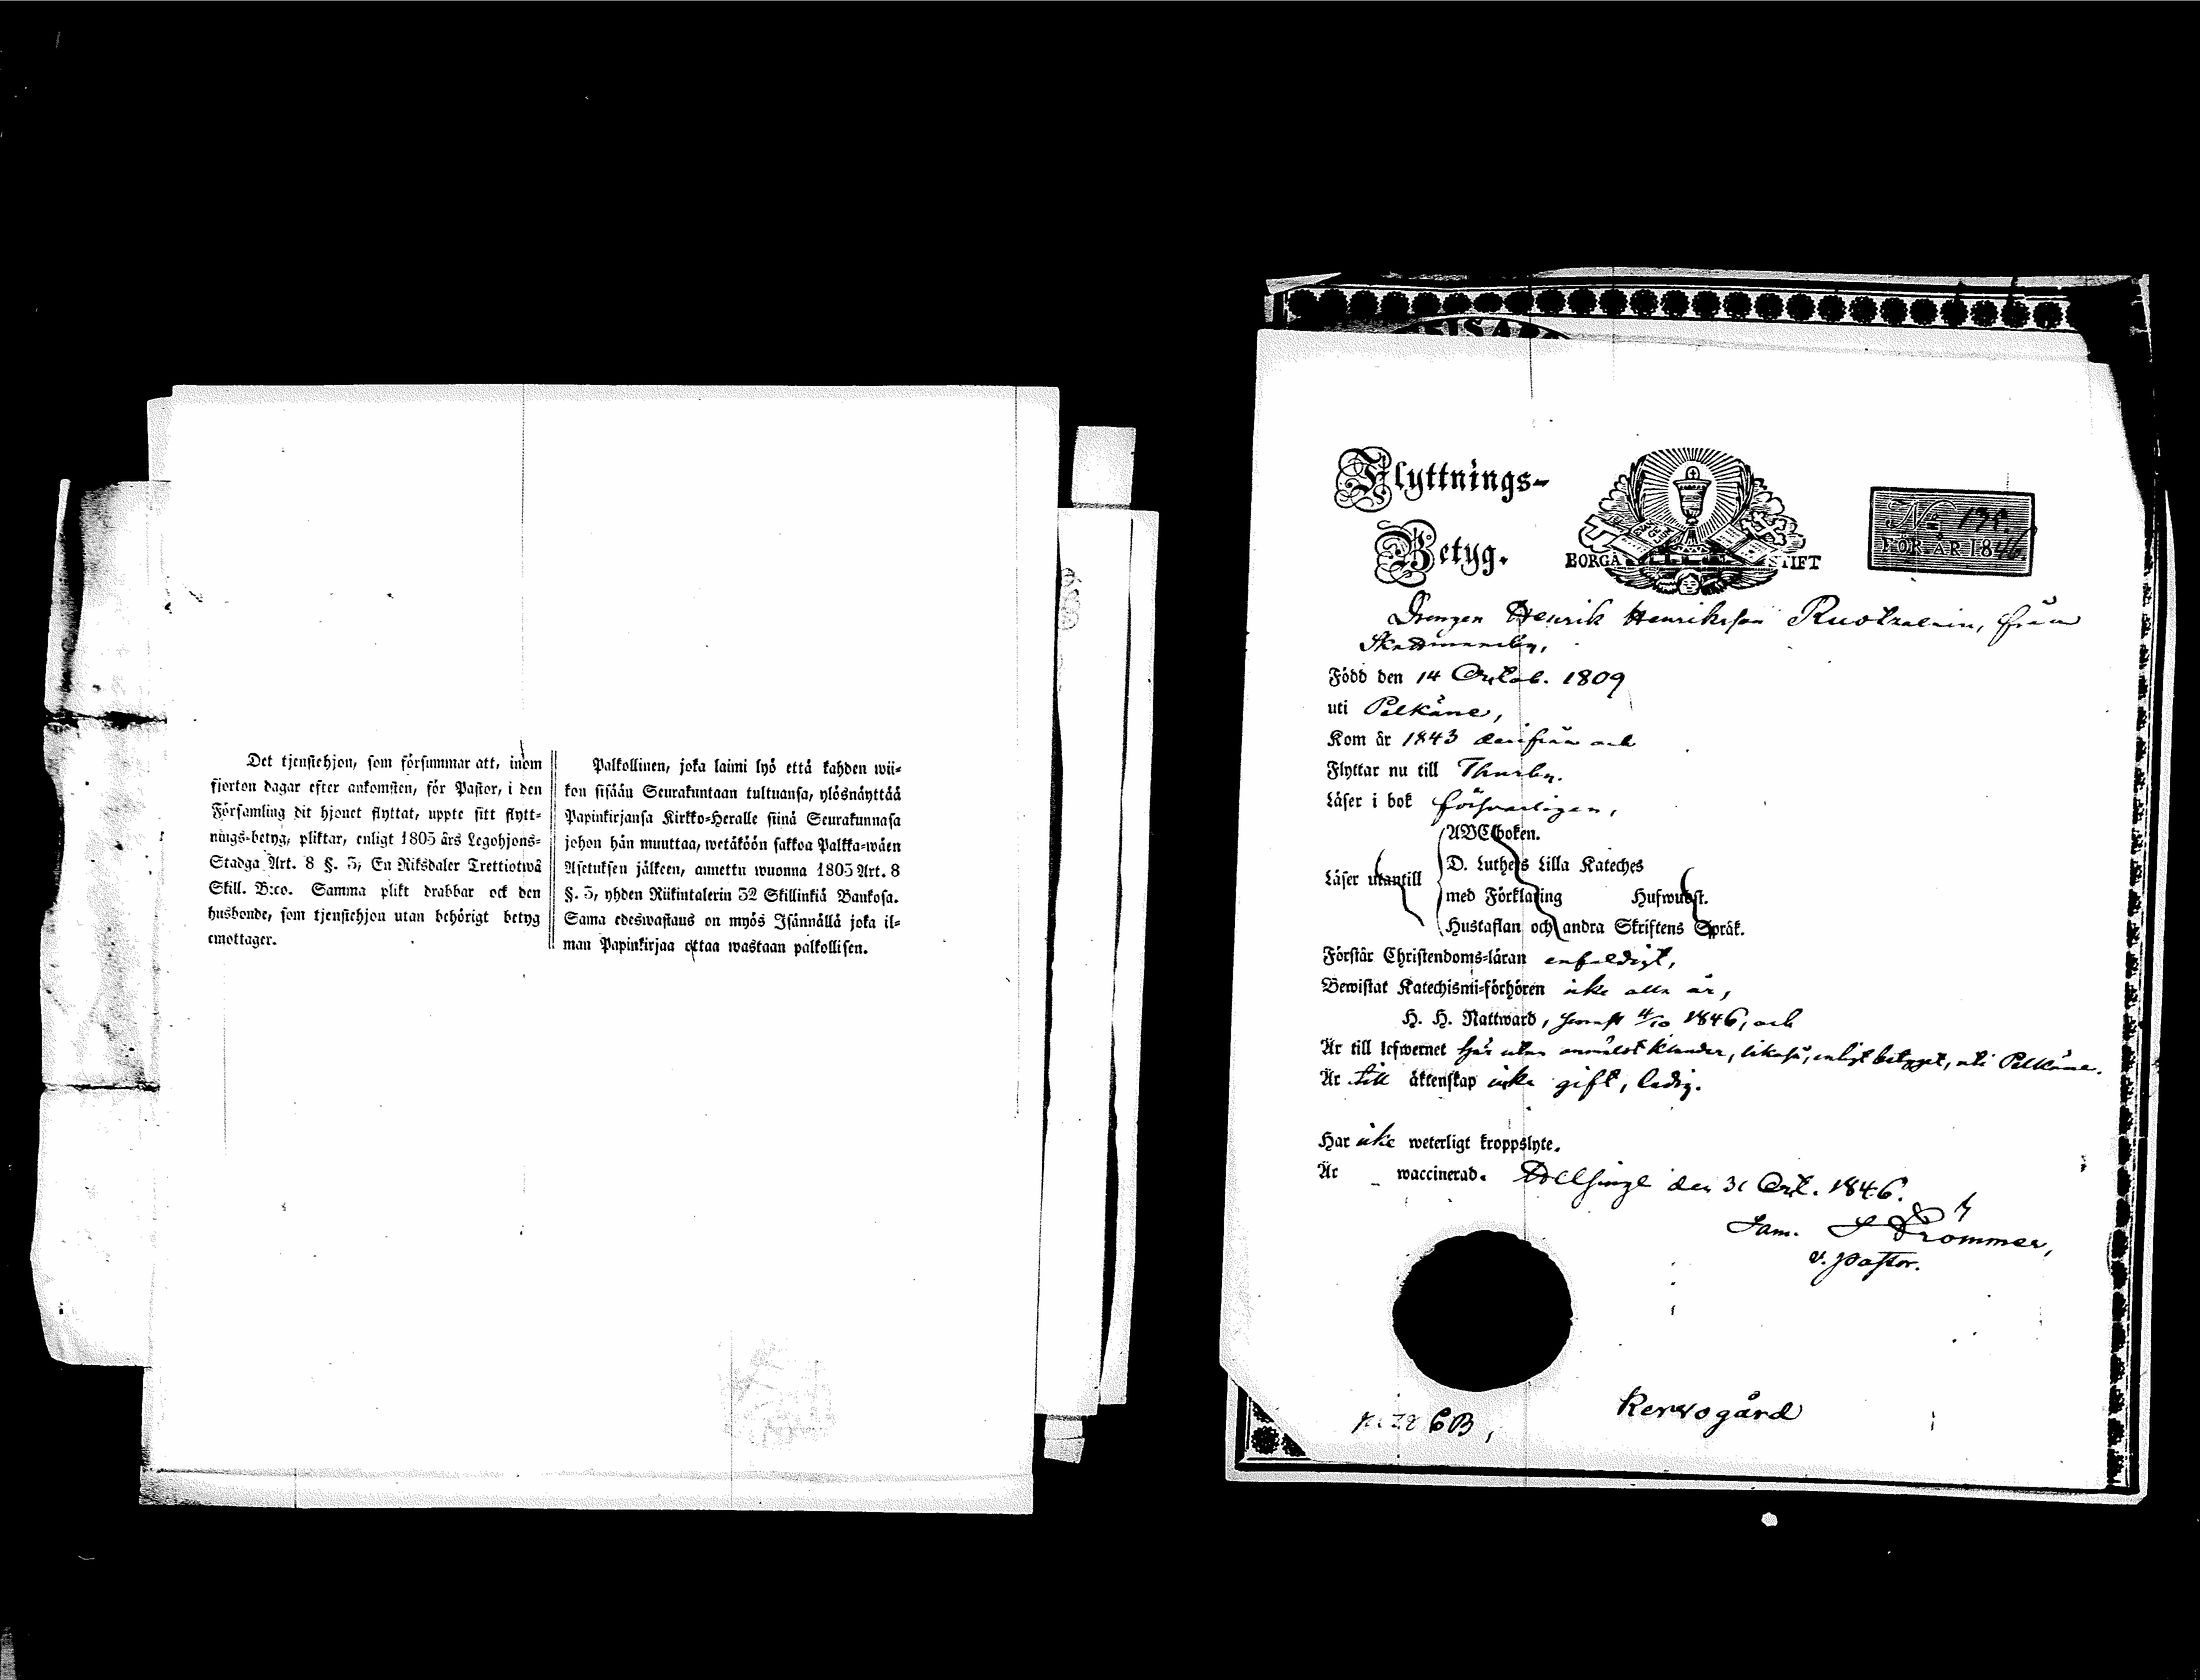 Det tjenstehjon, som försummar att, inom
fjorton dagar efter ankomsten, för Pastor, i den
Församling dit hjonet flyttat, uppte sitt flytt-
nings-betyg, pliktar, enligt 1805 års Legohjons-
Stadga Art. 8 §. 3, En Riksdaler Trettiotwå
Skill. B:co. Samma plikt drabbar ock den
husbonde, som tjenstehjon utan behörigt betyg
emottager.
Palkollinen, joka laimi lyö että kahden wii-
kon sisään Seurakuntaan tultuansa, ylösnäyttää
Papinkirjansa Kirkko-Heralle siinä Seurakunnasa
johon hän muuttaa, wetäköön sakkoa Palkka-wäen
Asetuksen jälkeen, annettu wuonna 1805 Art. 8
§. 3, yhden Riikintalerin 32 Skillinkiä Bankosa.
Sama edeswastaus on myös Isännällä joka il-
man Papinkirjaa ottaa wastaan palkollisen.
Flyttnings-
Betyg.
BORGÅ STIFT
No
FÖR ÅR 1846
Drengen Henrik Henriksson från
Född den 14 Octob. 1809
uti Pelkäne,
Kom år 1843 derifrån och
Flyttar nu till Thusby.
Läser i bok försvarligen,
Läser utantill
ABCboken.
D. Luthers Lilla Kateches
med Förklaring Hufwudst.
Hustaflan och andra Skriftens Språk.
Förstår Christendoms-läran enfaldigt,
Bewistat Katechismi-förhören icke alla år,
H. H. Nattward, senast 4/10 1846, och
Är till lefwernet här utan anmäldt klander, likaså, enligt betyget, uti Pelkäne.
Är till äktenskap icke gift, ledig.
Har icke weterligt kroppslyte.
Är _ waccinerad. Helsinge den 31 Oct. 1846.
Sam. Strömmer,
v. pastor.
Kervogård